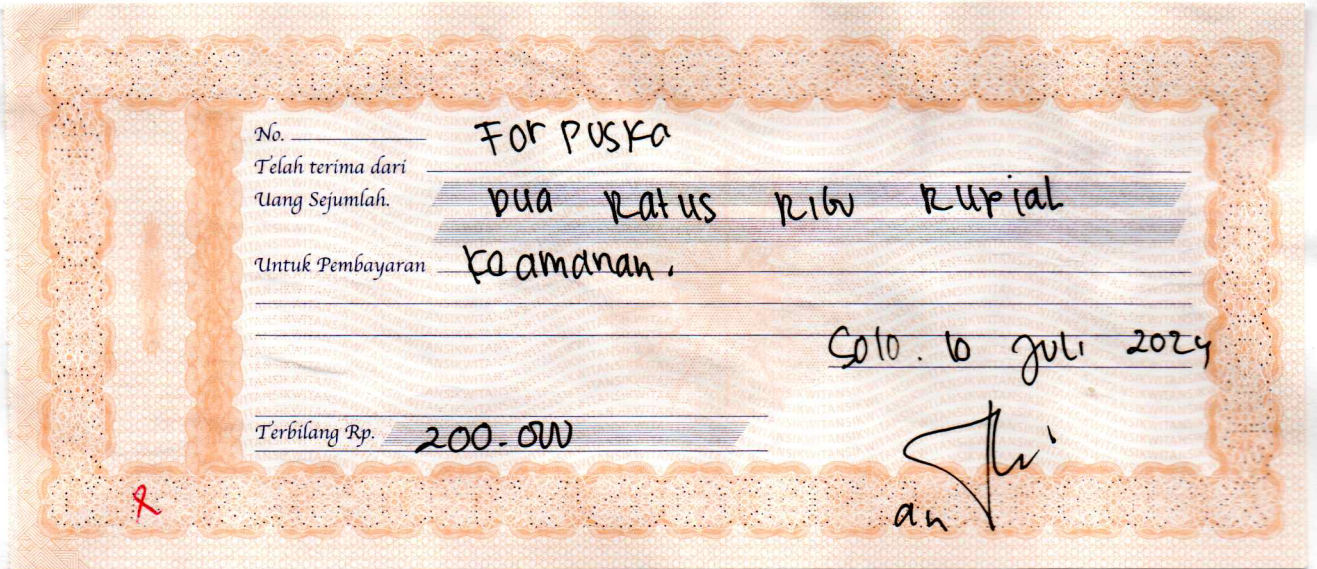 No.
Telah terima dari For puska
Uang Sejumlah. Dua Ratus Ribu Rupiah
Untuk Pembayaran Keamanan.
Solo. 10 Juli 2024
Terbilang Rp. 200.000
an